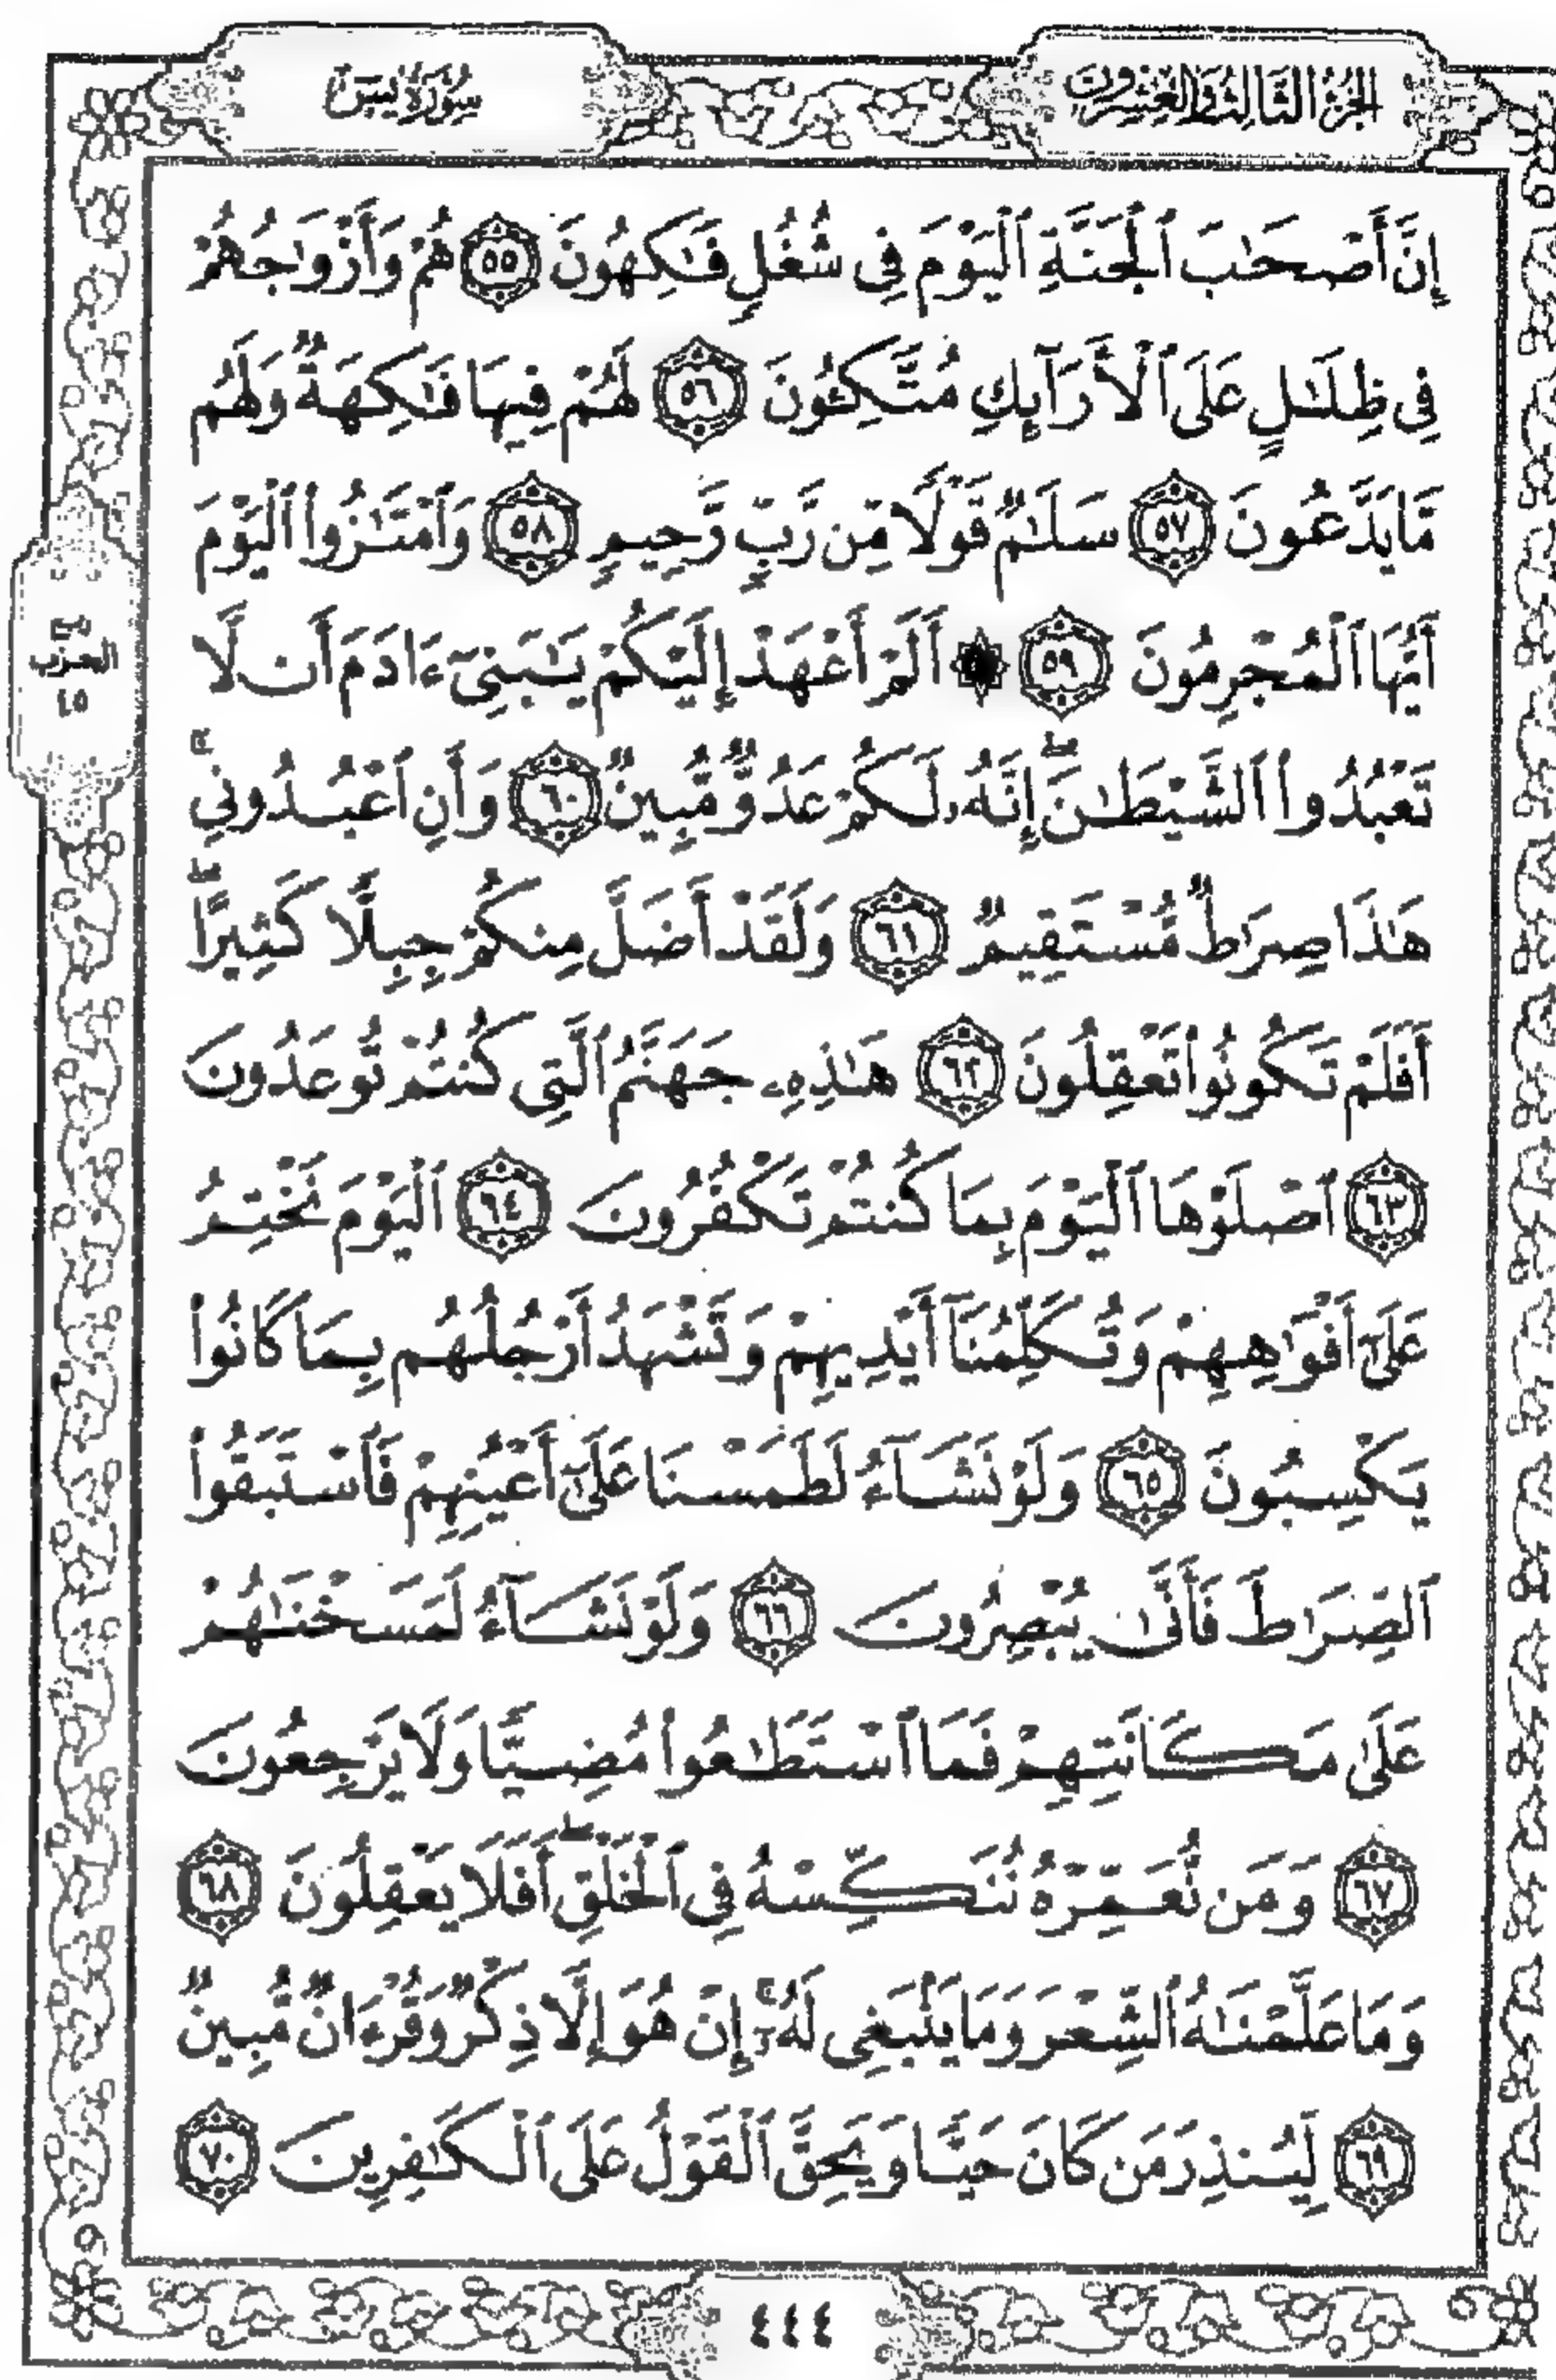 الجزء الثالث والعشرون
سورة يس
إِنَّ أَصْحَٰبَ ٱلْجَنَّةِ ٱلْيَوْمَ فِى شُغُلٍ فَٰكِهُونَ ٥٥ هُمْ وَأَزْوَٰجُهُمْ
فِى ظِلَٰلٍ عَلَى ٱلْأَرَآئِكِ مُتَّكِـُٔونَ ٥٦ لَهُمْ فِيهَا فَٰكِهَةٌ وَلَهُم
مَّا يَدَّعُونَ ٥٧ سَلَٰمٌ قَوْلًا مِّن رَّبٍّ رَّحِيمٍ ٥٨ وَٱمْتَٰزُوا۟ ٱلْيَوْمَ
أَيُّهَا ٱلْمُجْرِمُونَ ٥٩ ۞ أَلَمْ أَعْهَدْ إِلَيْكُمْ يَٰبَنِىٓ ءَادَمَ أَن لَّا
تَعْبُدُوا۟ ٱلشَّيْطَٰنَ ۖ إِنَّهُۥ لَكُمْ عَدُوٌّ مُّبِينٌ ٦٠ وَأَنِ ٱعْبُدُونِى ۚ
هَٰذَا صِرَٰطٌ مُّسْتَقِيمٌ ٦١ وَلَقَدْ أَضَلَّ مِنكُمْ جِبِلًّا كَثِيرًا ۖ
أَفَلَمْ تَكُونُوا۟ تَعْقِلُونَ ٦٢ هَٰذِهِۦ جَهَنَّمُ ٱلَّتِى كُنتُمْ تُوعَدُونَ
٦٣ ٱصْلَوْهَا ٱلْيَوْمَ بِمَا كُنتُمْ تَكْفُرُونَ ٦٤ ٱلْيَوْمَ نَخْتِمُ
عَلَىٰٓ أَفْوَٰهِهِمْ وَتُكَلِّمُنَآ أَيْدِيهِمْ وَتَشْهَدُ أَرْجُلُهُم بِمَا كَانُوا۟
يَكْسِبُونَ ٦٥ وَلَوْ نَشَآءُ لَطَمَسْنَا عَلَىٰٓ أَعْيُنِهِمْ فَٱسْتَبَقُوا۟
ٱلصِّرَٰطَ فَأَنَّىٰ يُبْصِرُونَ ٦٦ وَلَوْ نَشَآءُ لَمَسَخْنَٰهُمْ
عَلَىٰ مَكَانَتِهِمْ فَمَا ٱسْتَطَٰعُوا۟ مُضِيًّا وَلَا يَرْجِعُونَ
٦٧ وَمَن نُّعَمِّرْهُ نُنَكِّسْهُ فِى ٱلْخَلْقِ ۖ أَفَلَا يَعْقِلُونَ ٦٨
وَمَا عَلَّمْنَٰهُ ٱلشِّعْرَ وَمَا يَنۢبَغِى لَهُۥٓ ۚ إِنْ هُوَ إِلَّا ذِكْرٌ وَقُرْءَانٌ مُّبِينٌ
٦٩ لِّيُنذِرَ مَن كَانَ حَيًّا وَيَحِقَّ ٱلْقَوْلُ عَلَى ٱلْكَٰفِرِينَ ٧٠
الحزب
٤٥
٤٤٤